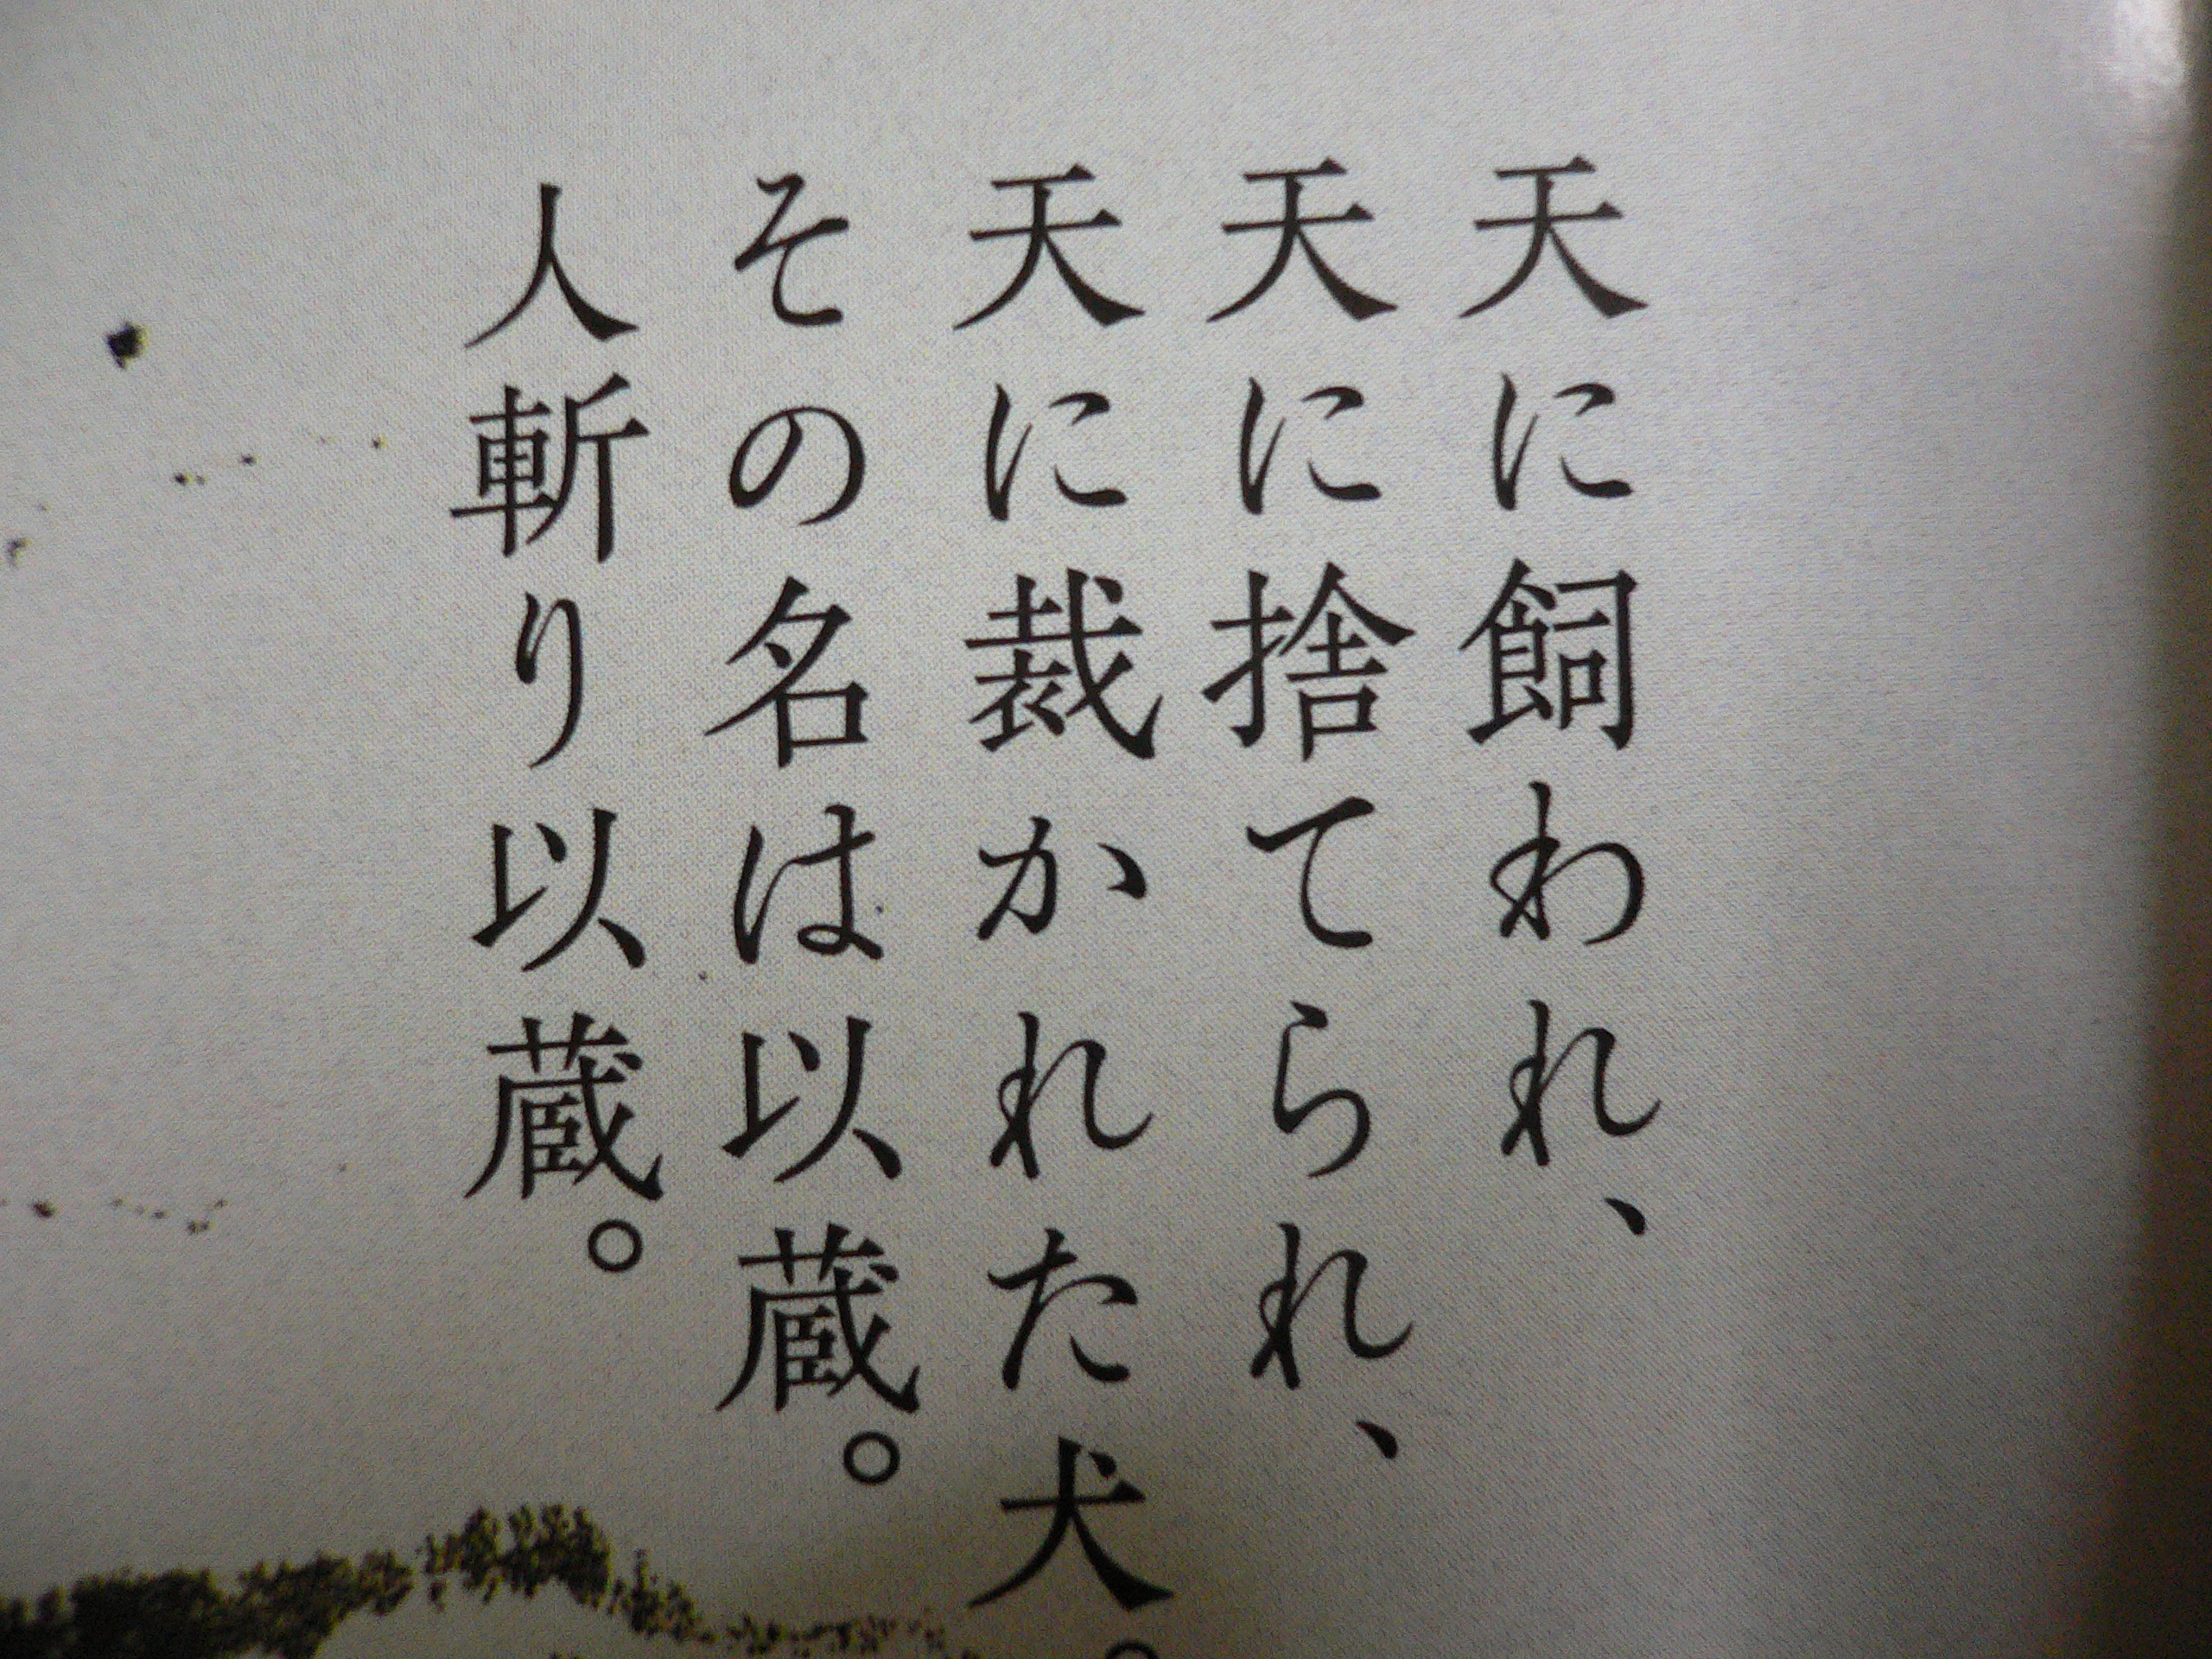 天に飼われ、
天に捨てられ、
天に裁かれた犬。
その名は以蔵。
人斬り以蔵。